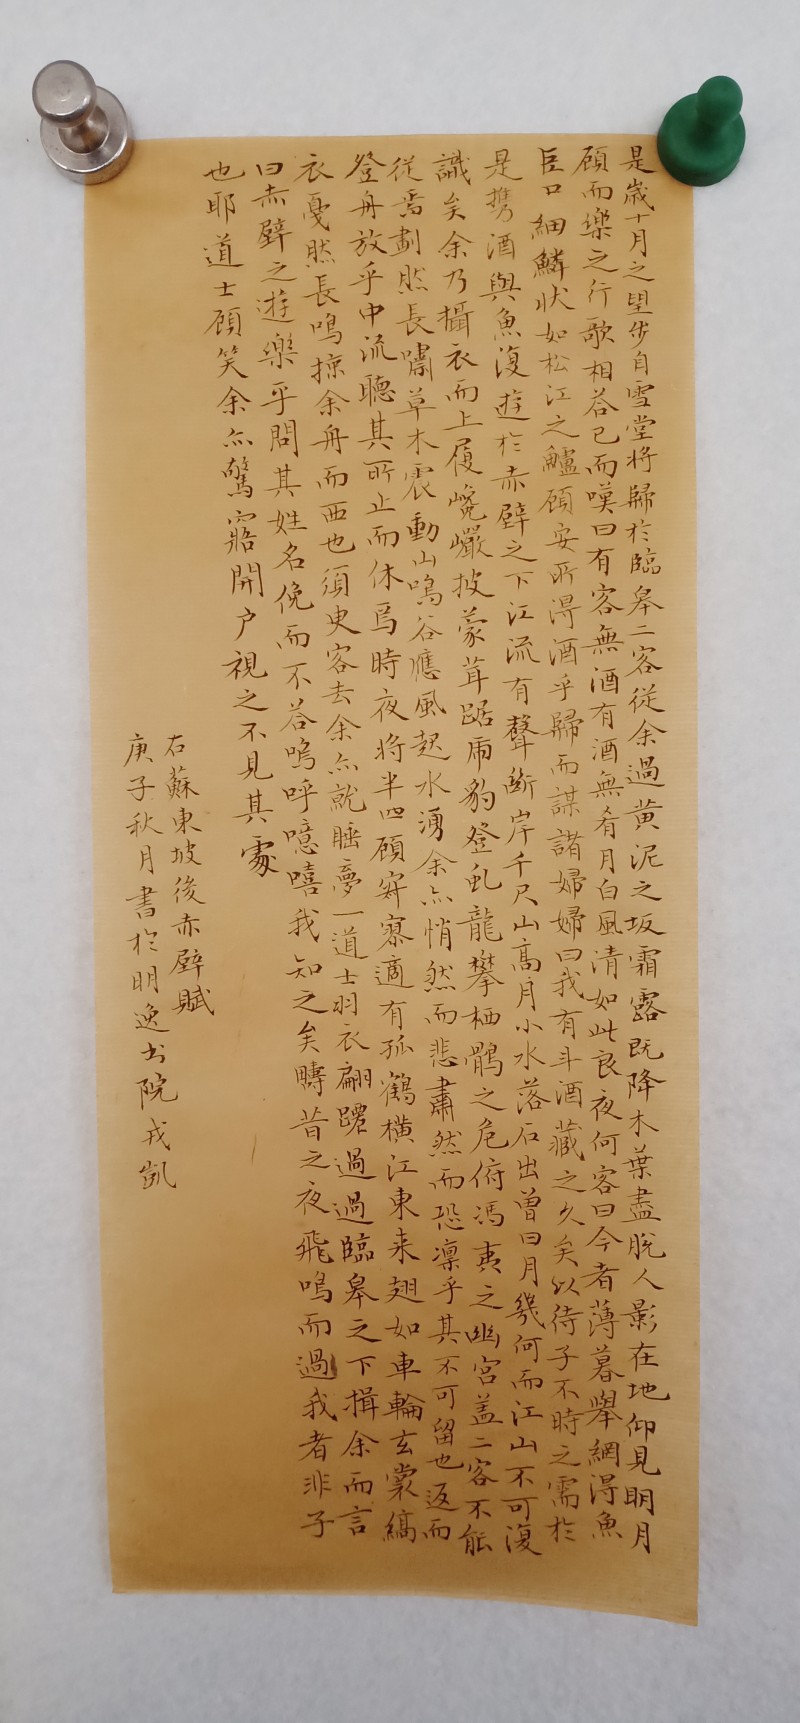 是歲十月之望步自雪堂將歸於臨皋二客從余過黃泥之坂霜露既降木葉盡脫人影在地仰見明月
顧而樂之行歌相答已而嘆曰有客無酒有酒無肴月白風清如此良夜何客曰今者薄暮舉網得魚
巨口細鱗狀如松江之鱸顧安所得酒乎歸而謀諸婦婦曰我有斗酒藏之久矣以待子不時之需於
是攜酒與魚復遊於赤壁之下江流有聲斷岸千尺山高月小水落石出曾日月幾何而江山不可復
識矣余乃攝衣而上履巉巖披蒙茸踞虎豹登虬龍攀栖鶻之危俯馮夷之幽宮蓋二客不能
從焉劃然長嘯草木震動山鳴谷應風起水湧余亦悄然而悲肅然而恐凜乎其不可留也返而
登舟放乎中流聽其所止而休焉時夜將半四顧寂寥適有孤鶴橫江東來翅如車輪玄裳縞
衣戛然長鳴掠余舟而西也須臾客去余亦就睡夢一道士羽衣翩躚過過臨皋之下揖余而言
曰赤壁之遊樂乎問其姓名俛而不答嗚呼噫嘻我知之矣疇昔之夜飛鳴而過我者非子
也耶道士顧笑余亦驚寤開户視之不見其處
右蘇東坡後赤壁賦
庚子秋月書於明逸書院戎凱